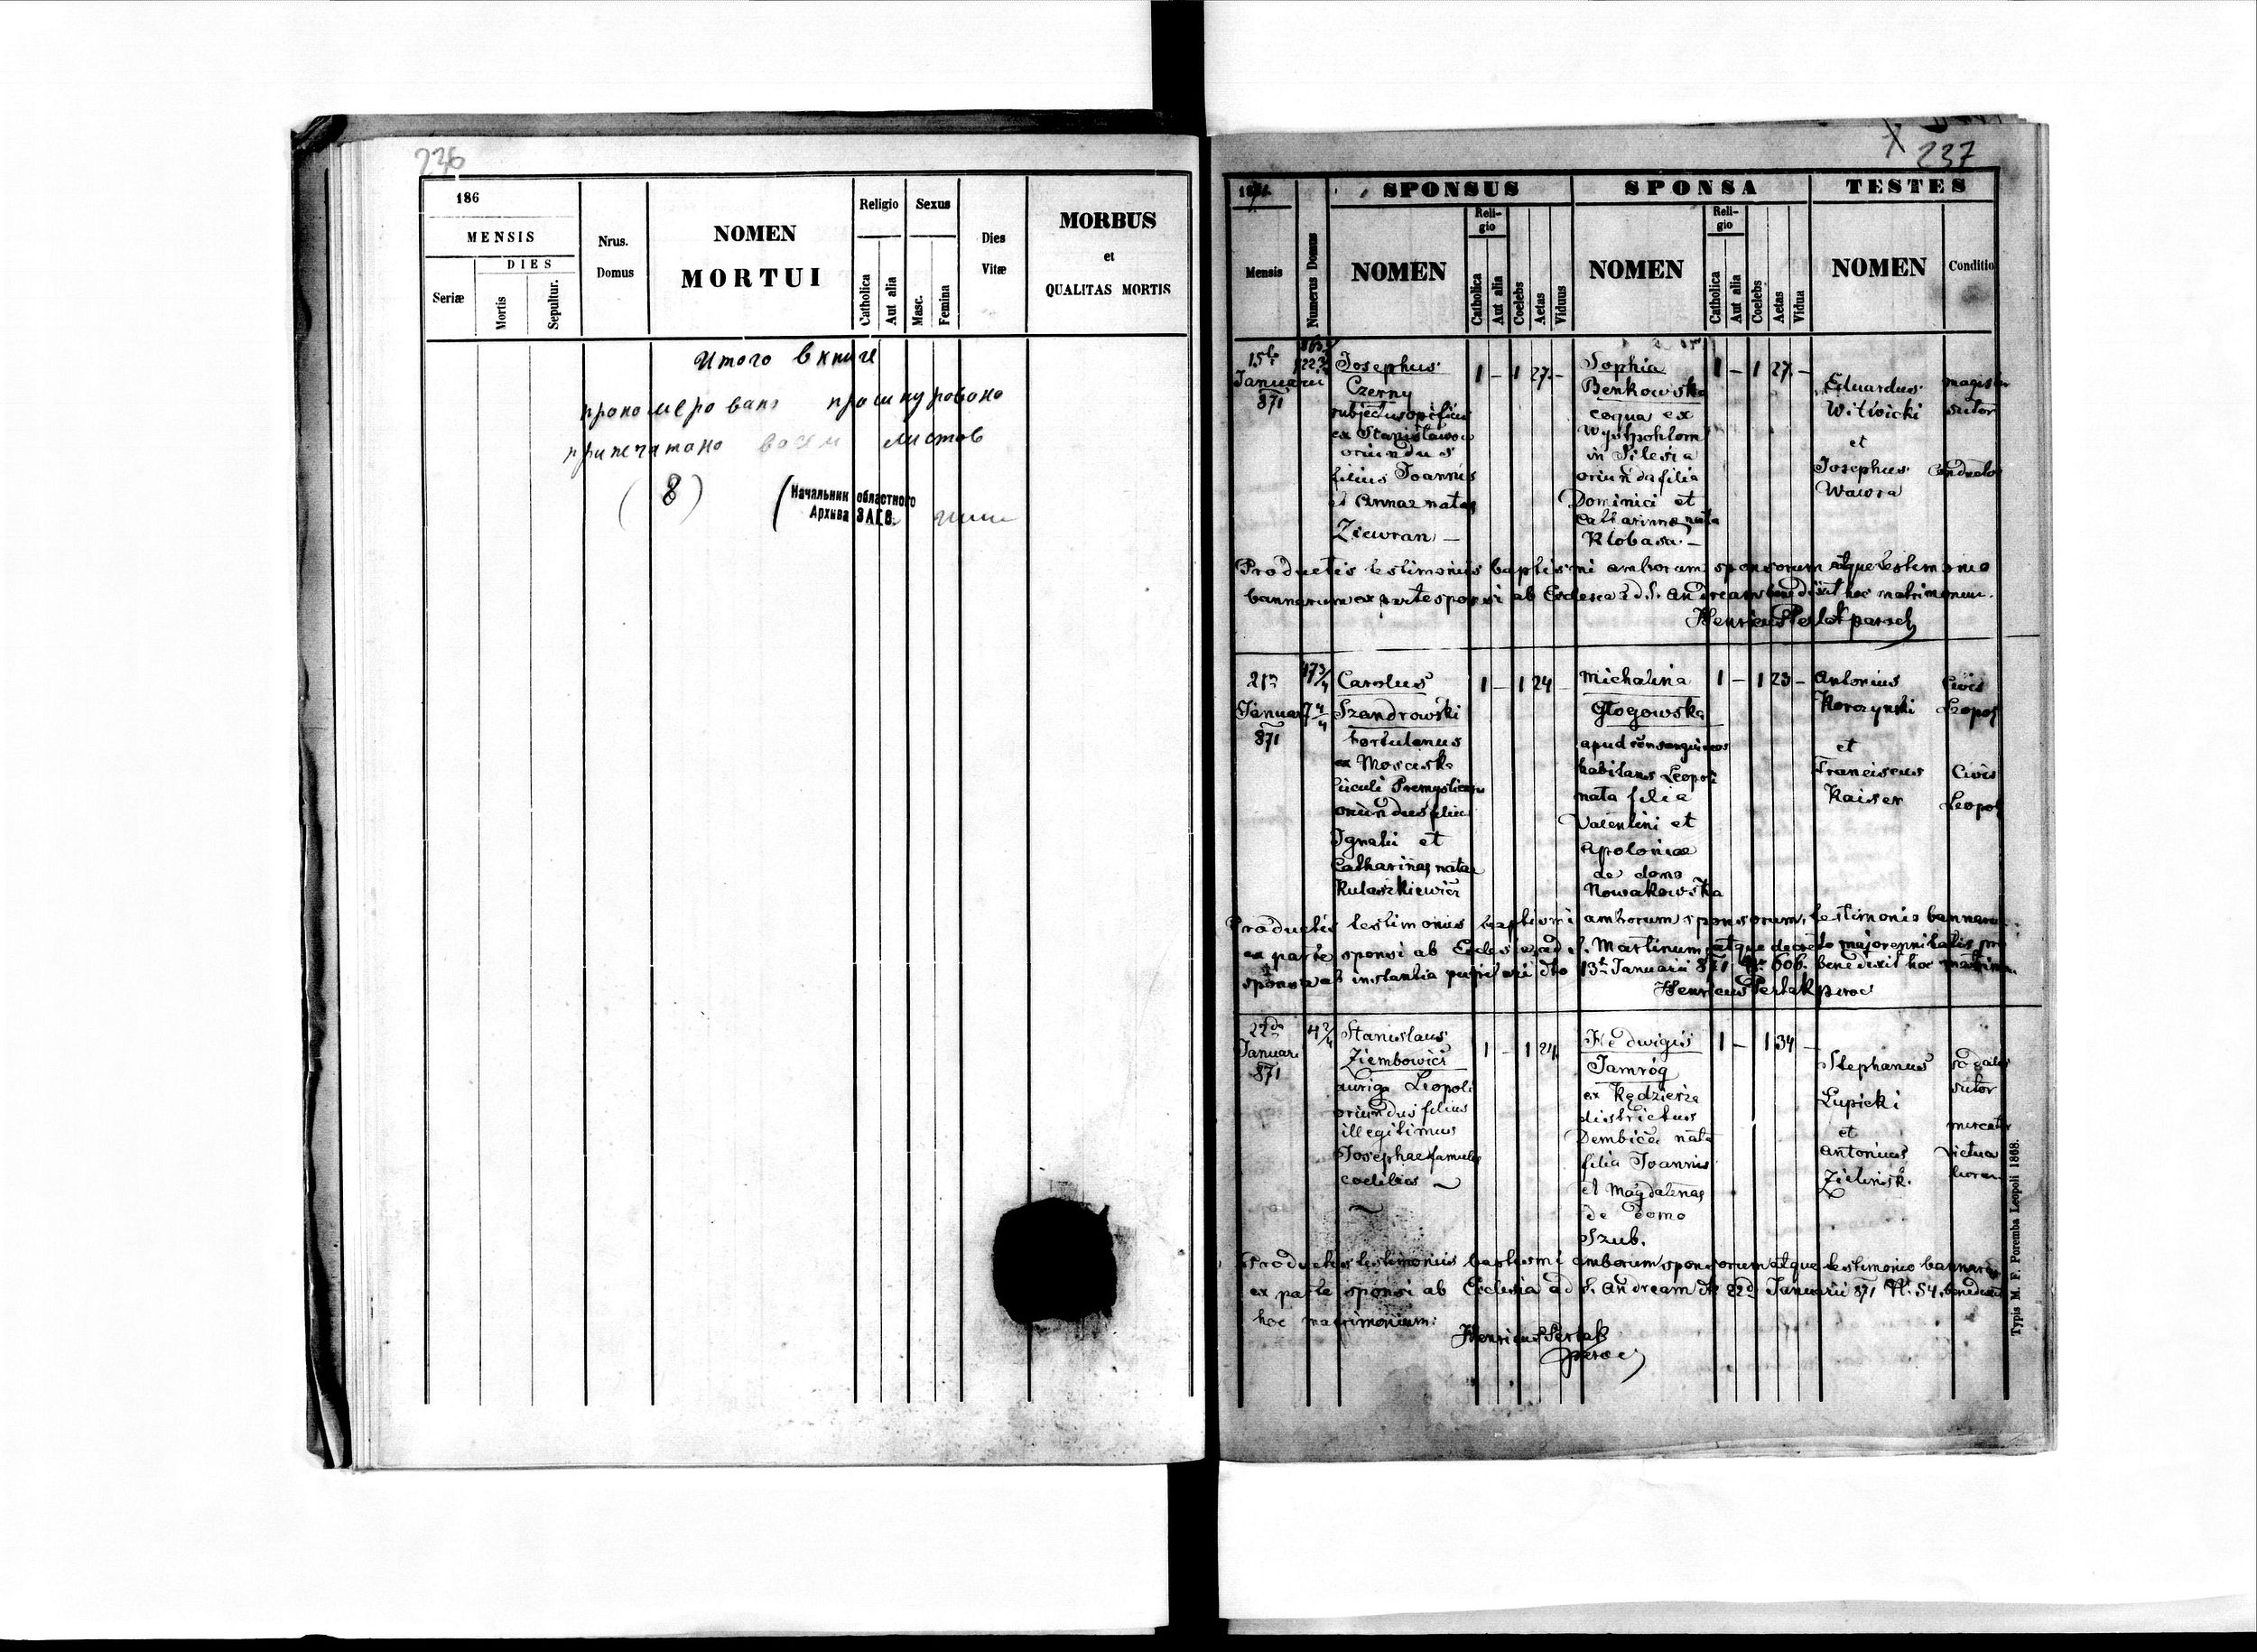 236
186
MENSIS
DIES
Seriæ
Mortis
Sepultur.
Nrus.
Domus
NOMEN
MORTUI
Religio
Catholica
Aut alia
Sexus
Masc.
Femina
Dies
Vitæ
MORBUS
et
QUALITAS MORTIS
Итого в книге
прономеровано прошнуровано
припечатано восем листов
(8)
Начальник областного
Архива ЗАГС.
237
Mensis
Numerus Domus
SPONSUS
NOMEN
Reli-
gio
Catholica
Aut alia
Coelebs
Aetas
Viduus
SPONSA
NOMEN
Reli-
gio
Catholica
Aut alia
Coelebs
Aetas
Vidua
TESTES
NOMEN
Conditio
15
Januarii
871
Josephus
Czerny
ex Stanislawow
oriundus
filius Joannis
et Annae natae
Ziewran —
1 – 1 27 –
Sophia
Benkowska
coqua ex
in Silesia
oriunda filia
Dominici et
Catharinae nata
Klobasa. —
1 – 1 27 –
Eduardus
Witwicki
et
Josephus
Wawra
magister
sutor
Productis testimoniis baptismi amborum sponsorum atque testimonio
bannorum ex parte sponsi ab Ecclesia ad S. Andream benedixit hoc matrimonium.
Henricus Perlak paroch
21
Januar
871
Carolus
Szandrowski
hortulanus
ex Mosciska
circuli Premysliensis
oriundus filius
Ignatii et
Catharinae natae
Kulaszkiewicz
1 – 1 24 –
Michalina
Głogowska
apud consanguineos
habitans Leopoli
nata filia
Valentini et
Apoloniae
de domo
Nowakowska
1 – 1 23 –
Antonius
Korczynski
et
Franciscus
Kaiser
Civis
Leopol
Civis
Leopol
Productis testimoniis baptismi amborum sponsorum, testimonio bannorum
ex parte sponsi ab Ecclesia ad S. Martinum atque decreto majorennitatis pro
sponsa ab instantia pupilari dto 13 Januarii 871 606. benedixit hoc matrim.
Henricus Perlak paroc
22
Januari
871
Stanislaus
Ziembowicz
auriga Leopoli
oriundus filius
illegitimus
Josephae famulae
coelibis —
1 – 1 24
Hedwigis
Jamróg
ex Kędzierz
districtus
Dembica nata
filia Joannis
et Magdalenae
de domo
Szub.
1 – 1 34 –
Stephanus
Lupicki
et
Antonius
Zielinski
sutor
mercator
Productis testimoniis baptismi amborum sponsorum atque testimonio bannorum
ex parte sponsi ab Ecclesia ad S. Andream 22 Januarii 871 N. 54. benedixit
hoc matrimonium.
Henricus Perlak
paroc
Typis M. F. Poremba Leopoli 1868.